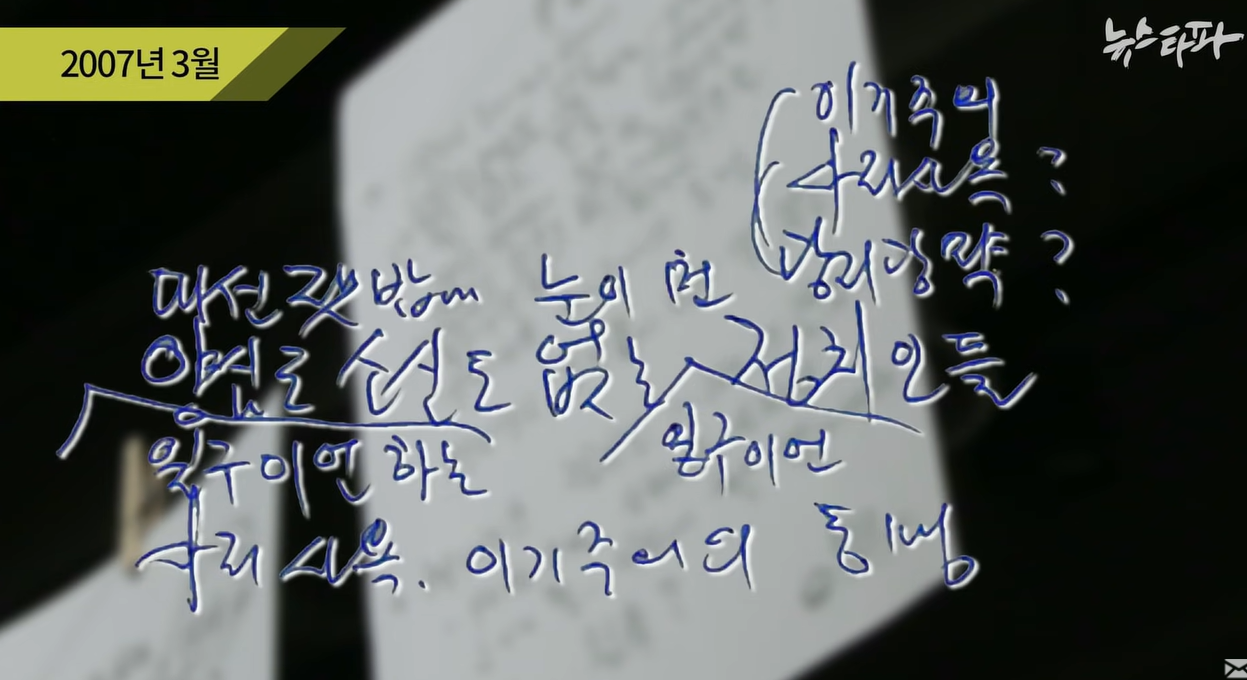 2007년 3월
뉴스타파
이기주의
사리사욕?
당리당략?
대선 잿밥에 눈이 먼
양심도 소신도 없는 정치인들
일구이언 하는 일구이언
사리사욕. 이기주의의